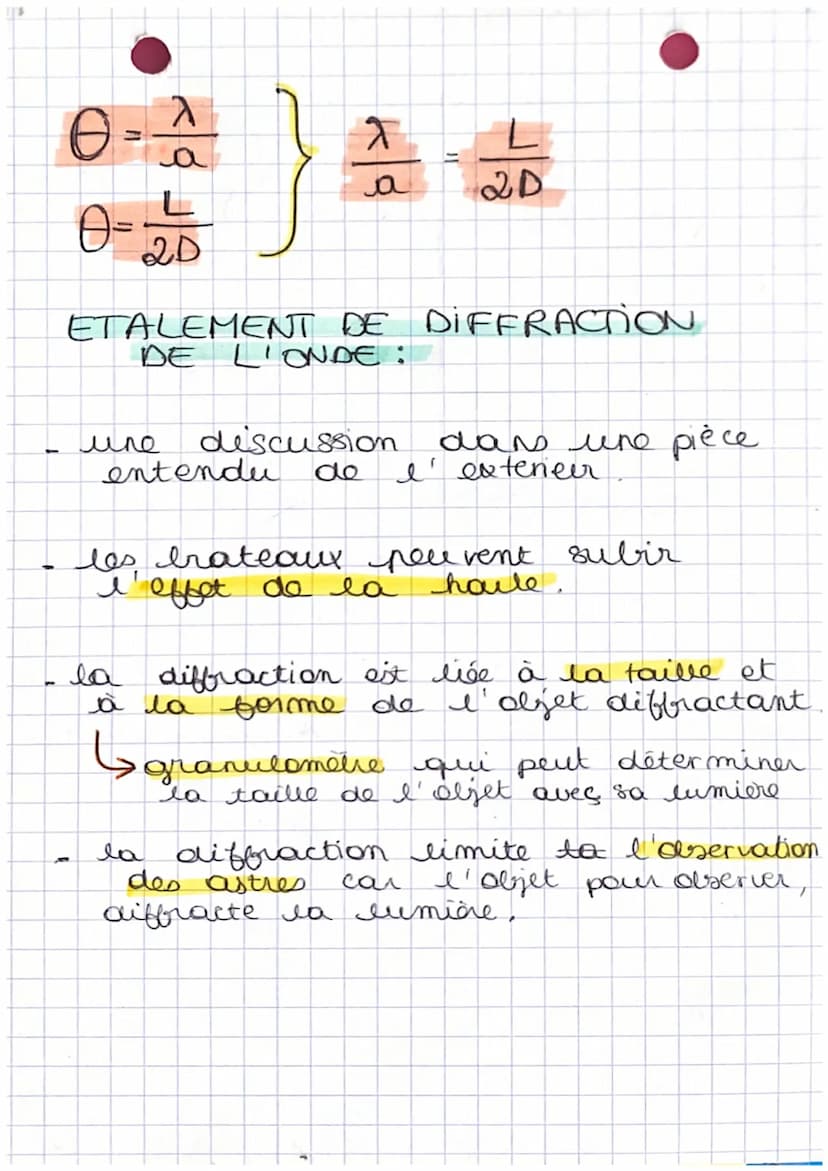 θ = λ/a } λ/a = L/2D
θ = L/2D
ETALEMENT DE DIFFRACTION
DE L'ONDE :
- une discussion dans une pièce
entendu de l'exterieur.
- les bateaux peuvent subir
l'effet de la houle.
- la diffraction est liée à la taille et
à la forme de l'objet diffractant
↳ granulomètre qui peut déterminer
la taille de l'objet avec sa lumière
- la diffraction limite la l'observation
des astres car l'objet pour observer,
diffracte la lumière.